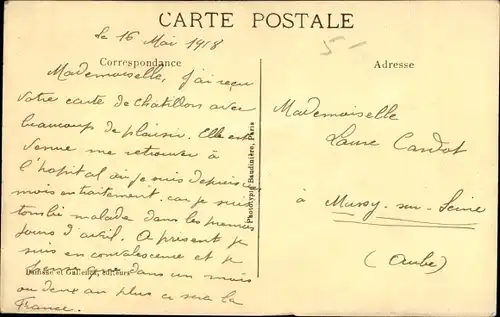 CARTE POSTALE
Le 16 Mai 1918
5-
Correspondance
Mademoiselle, j'ai reçu
votre carte de Chatillon avec
beaucoup de plaisir. Elle est
venue me retrouver à
l'hopital où je suis depuis
mois en traitement. car je suis
tombé malade dans les premiers
jours d'avril. A present je
suis en convalescence et je
pense que dans un mois
ou deux au plus ce sera la
France.
Gallelon, éditeurs
Phototypie Baudinière, Paris
Adresse
Mademoiselle
Laure Cardot
à Mussy-sur-Seine
(Aube)